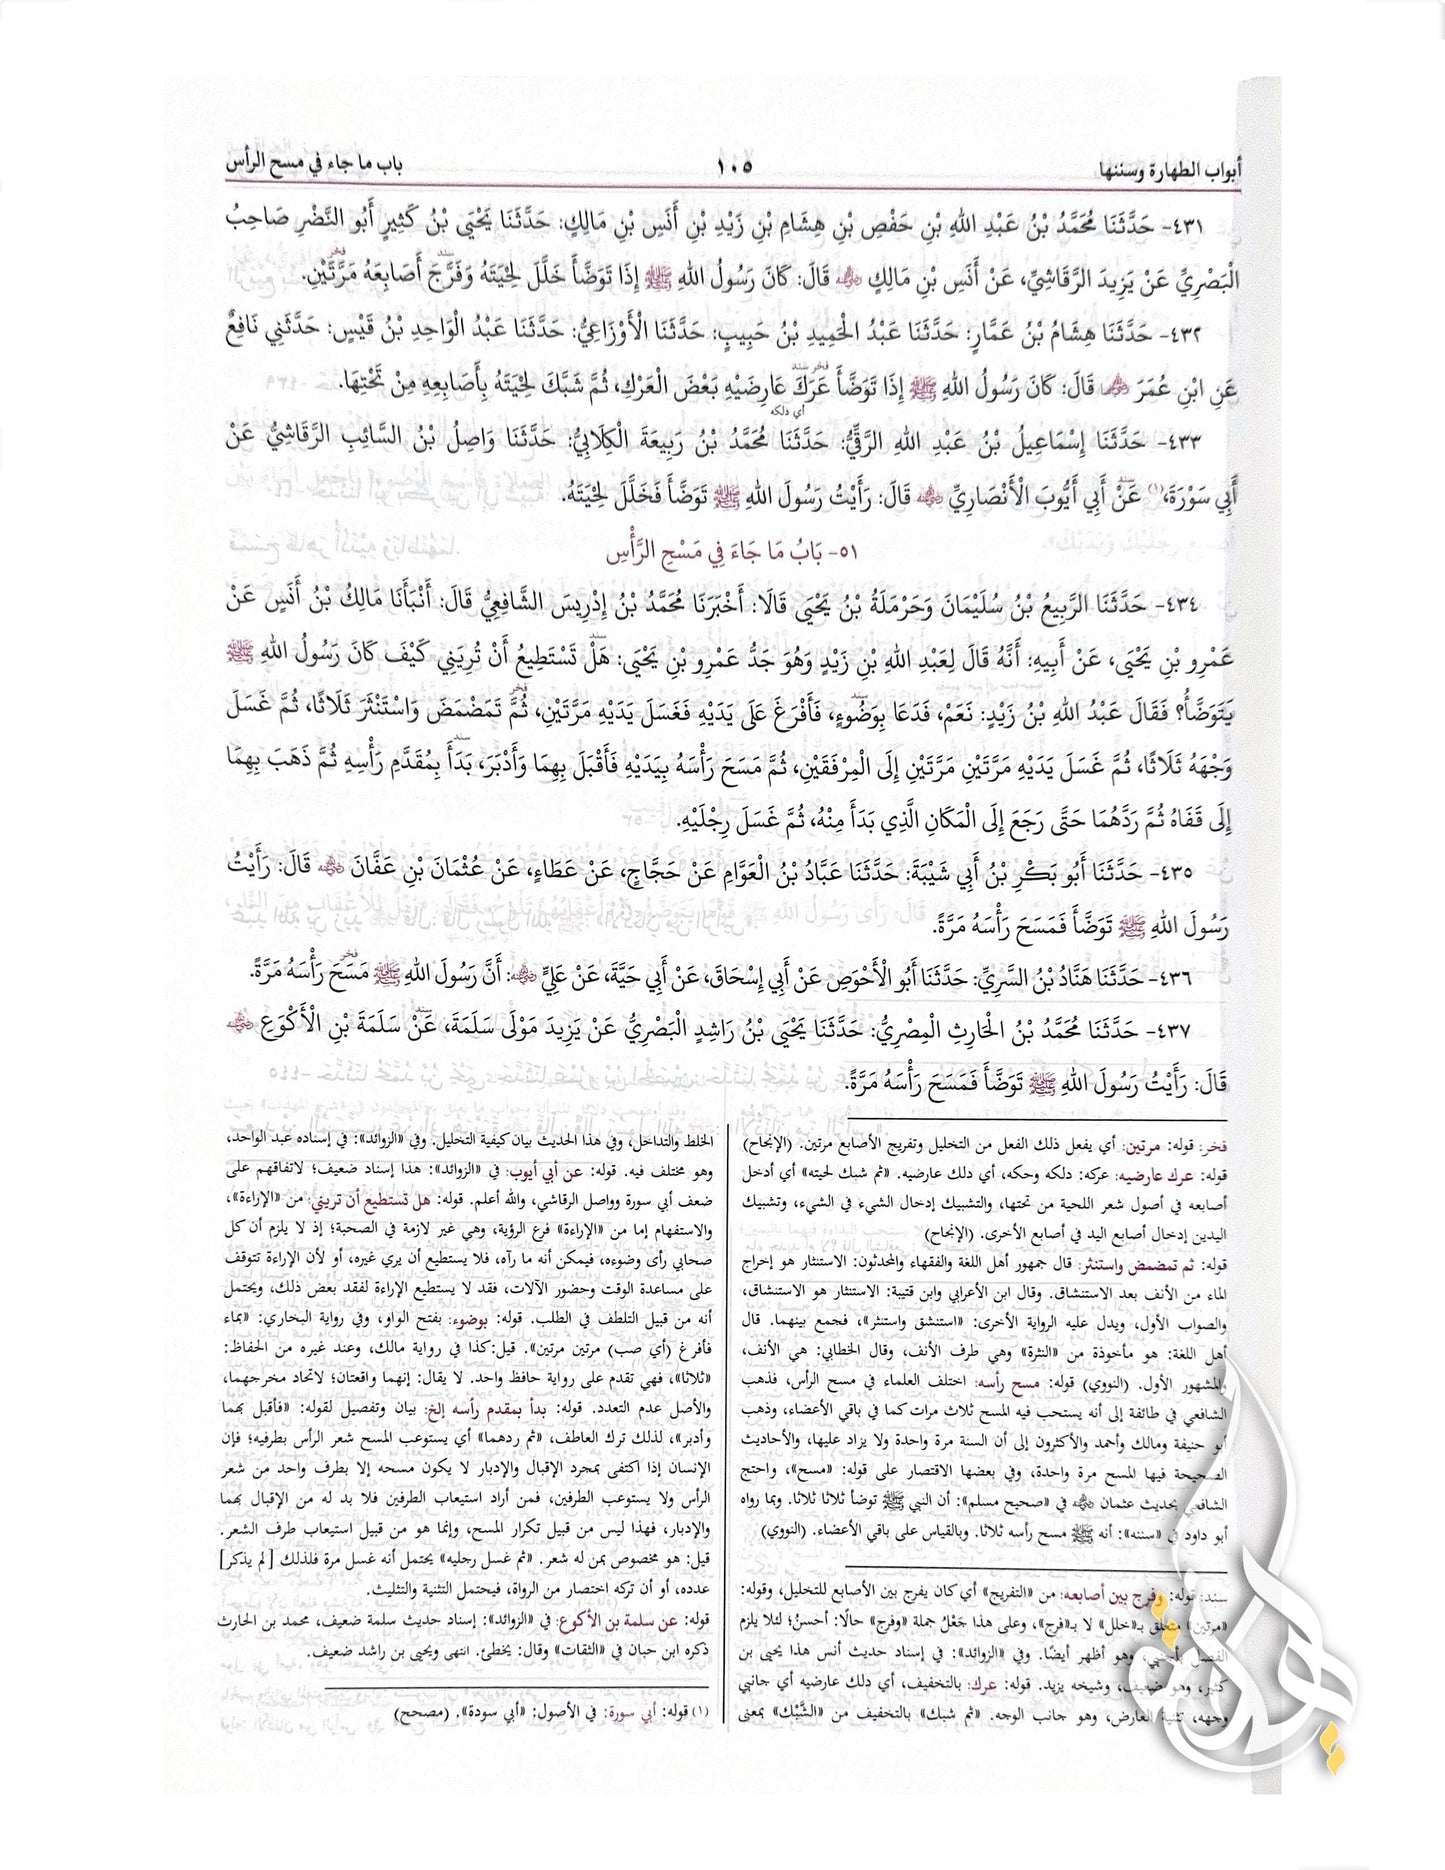 أبواب الطهارة وسننها
١٠٥
باب ما جاء في مسح الرأس
٤٣١- حَدَّثَنَا مُحَمَّدُ بْنُ عَبْدِ اللهِ بْنِ حَفْصِ بْنِ هِشَامِ بْنِ زَيْدِ بْنِ أَنَسِ بْنِ مَالِكٍ: حَدَّثَنَا يَحْيَى بْنُ كَثِيرٍ أَبُو النَّضْرِ صَاحِبُ
الْبَصْرِيِّ عَنْ يَزِيدَ الرَّقَاشِيِّ، عَنْ أَنَسِ بْنِ مَالِكٍ ﷺ قَالَ: كَانَ رَسُولُ اللهِ ﷺ إِذَا تَوَضَّأَ خَلَّلَ لِحْيَتَهُ وَفَرَّجَ أَصَابِعَهُ مَرَّتَيْنِ.
٤٣٢- حَدَّثَنَا هِشَامُ بْنُ عَمَّارٍ: حَدَّثَنَا عَبْدُ الْحَمِيدِ بْنُ حَبِيبٍ: حَدَّثَنَا الْأَوْزَاعِيُّ: حَدَّثَنَا عَبْدُ الْوَاحِدِ بْنُ قَيْسٍ: حَدَّثَنِي نَافِعٌ
عَنِ ابْنِ عُمَرَ قَالَ: كَانَ رَسُولُ اللهِ ﷺ إِذَا تَوَضَّأَ عَرَكَ عَارِضَيْهِ بَعْضَ الْعَرْكِ، ثُمَّ شَبَّكَ لِحْيَتَهُ بِأَصَابِعِهِ مِنْ تَحْتِهَا.
أي دلكه
٤٣٣- حَدَّثَنَا إِسْمَاعِيلُ بْنُ عَبْدِ اللهِ الرَّقِّيُّ: حَدَّثَنَا مُحَمَّدُ بْنُ رَبِيعَةَ الْكِلَابِيُّ: حَدَّثَنَا وَاصِلُ بْنُ السَّائِبِ الرَّقَاشِيُّ عَنْ
أَبِي سَوْرَةَ،(١) عَنْ أَبِي أَيُّوبَ الْأَنْصَارِيِّ قَالَ: رَأَيْتُ رَسُولَ اللهِ ﷺ تَوَضَّأَ فَخَلَّلَ لِحْيَتَهُ.
٥١- بَابُ مَا جَاءَ فِي مَسْحِ الرَّأْسِ
٤٣٤- حَدَّثَنَا الرَّبِيعُ بْنُ سُلَيْمَانَ وَحَرْمَلَةُ بْنُ يَحْيَى قَالَا: أَخْبَرَنَا مُحَمَّدُ بْنُ إِدْرِيسَ الشَّافِعِيُّ قَالَ: أَنْبَأَنَا مَالِكُ بْنُ أَنَسٍ عَنْ
عَمْرِو بْنِ يَحْيَى، عَنْ أَبِيهِ: أَنَّهُ قَالَ لِعَبْدِ اللهِ بْنِ زَيْدٍ وَهُوَ جَدُّ عَمْرِو بْنِ يَحْيَى: هَلْ تَسْتَطِيعُ أَنْ تُرِيَنِي كَيْفَ كَانَ رَسُولُ اللهِ ﷺ
يَتَوَضَّأُ؟ فَقَالَ عَبْدُ اللهِ بْنُ زَيْدٍ: نَعَمْ، فَدَعَا بِوَضُوءٍ، فَأَفْرَغَ عَلَى يَدَيْهِ فَغَسَلَ يَدَيْهِ مَرَّتَيْنِ، ثُمَّ تَمَضْمَضَ وَاسْتَنْثَرَ ثَلَاثًا، ثُمَّ غَسَلَ
وَجْهَهُ ثَلَاثًا، ثُمَّ غَسَلَ يَدَيْهِ مَرَّتَيْنِ مَرَّتَيْنِ إِلَى الْمِرْفَقَيْنِ، ثُمَّ مَسَحَ رَأْسَهُ بِيَدَيْهِ فَأَقْبَلَ بِهِمَا وَأَدْبَرَ، بَدَأَ بِمُقَدَّمِ رَأْسِهِ ثُمَّ ذَهَبَ بِهِمَا
إِلَى قَفَاهُ ثُمَّ رَدَّهُمَا حَتَّى رَجَعَ إِلَى الْمَكَانِ الَّذِي بَدَأَ مِنْهُ، ثُمَّ غَسَلَ رِجْلَيْهِ.
٤٣٥- حَدَّثَنَا أَبُو بَكْرِ بْنُ أَبِي شَيْبَةَ: حَدَّثَنَا عَبَّادُ بْنُ الْعَوَّامِ عَنْ حَجَّاجٍ، عَنْ عَطَاءٍ، عَنْ عُثْمَانَ بْنِ عَفَّانَ قَالَ: رَأَيْتُ
رَسُولَ اللهِ ﷺ تَوَضَّأَ فَمَسَحَ رَأْسَهُ مَرَّةً.
٤٣٦- حَدَّثَنَا هَنَّادُ بْنُ السَّرِيِّ: حَدَّثَنَا أَبُو الْأَحْوَصِ عَنْ أَبِي إِسْحَاقَ، عَنْ أَبِي حَيَّةَ، عَنْ عَلِيٍّ: أَنَّ رَسُولَ اللهِ ﷺ مَسَحَ رَأْسَهُ مَرَّةً.
٤٣٧- حَدَّثَنَا مُحَمَّدُ بْنُ الْحَارِثِ الْمِصْرِيُّ: حَدَّثَنَا يَحْيَى بْنُ رَاشِدٍ الْبَصْرِيُّ عَنْ يَزِيدَ مَوْلَى سَلَمَةَ، عَنْ سَلَمَةَ بْنِ الْأَكْوَعِ
قَالَ: رَأَيْتُ رَسُولَ اللهِ ﷺ تَوَضَّأَ فَمَسَحَ رَأْسَهُ مَرَّةً.
فخر: قوله: مرتين: أي يفعل ذلك الفعل من التخليل وتفريج الأصابع مرتين. (الإنجاح)
قوله: عرك عارضيه: عركه: دلكه وحكه، أي دلك عارضيه. «ثم شبك لحيته» أي أدخل
أصابعه في أصول شعر اللحية من تحتها، والتشبيك إدخال الشيء في الشيء، وتشبيك
اليدين إدخال أصابع اليد في أصابع الأخرى. (الإنجاح)
قوله: ثم تمضمض واستنثر: قال جمهور أهل اللغة والفقهاء والمحدثون: الاستنثار هو إخراج
الماء من الأنف بعد الاستنشاق. وقال ابن الأعرابي وابن قتيبة: الاستنثار هو الاستنشاق،
والصواب الأول، ويدل عليه الرواية الأخرى: «استنشق واستنثر»، فجمع بينهما. قال
أهل اللغة: هو مأخوذة من «النثرة» وهي طرف الأنف، وقال الخطابي: هي الأنف،
والمشهور الأول. (النووي) قوله: مسح رأسه: اختلف العلماء في مسح الرأس، فذهب
الشافعي في طائفة إلى أنه يستحب فيه المسح ثلاث مرات كما في باقي الأعضاء، وذهب
أبو حنيفة ومالك وأحمد والأكثرون إلى أن السنة مرة واحدة ولا يزاد عليها، والأحاديث
الصحيحة فيها المسح مرة واحدة، وفي بعضها الاقتصار على قوله: «مسح»، واحتج
الشافعي بحديث عثمان في «صحيح مسلم»: أن النبي ﷺ توضأ ثلاثا ثلاثا. وبما رواه
أبو داود في «سننه»: أنه ﷺ مسح رأسه ثلاثا. وبالقياس على باقي الأعضاء. (النووي)
سند: قوله: وفرج بين أصابعه: من «التفريج» أي كان يفرج بين الأصابع للتخليل، وقوله:
«مرتين» متعلق بـ«خلل» لا بـ«فرج»، وعلى هذا جَعْلُ جملة «وفرج» حالًا: أحسنُ؛ لئلا يلزم
الفصل بأجنبي، وهو أظهر أيضًا. وفي «الزوائد»: في إسناد حديث أنس هذا يحيى بن
كثير، وهو ضعيف، وشيخه يزيد. قوله: عرك: بالتخفيف، أي دلك عارضيه أي جانبي
وجهه، تثنية العارض، وهو جانب الوجه. «ثم شبك» بالتخفيف من «الشَّبْك» بمعنى
الخلط والتداخل، وفي هذا الحديث بيان كيفية التخليل. وفي «الزوائد»: في إسناده عبد الواحد،
وهو مختلف فيه. قوله: عن أبي أيوب: في «الزوائد»: هذا إسناد ضعيف؛ لاتفاقهم على
ضعف أبي سورة وواصل الرقاشي، والله أعلم. قوله: هل تستطيع أن تريني: من «الإراءة»،
والاستفهام إما من «الإراءة» فرع الرؤية، وهي غير لازمة في الصحبة؛ إذ لا يلزم أن كل
صحابي رأى وضوءه، فيمكن أنه ما رآه، فلا يستطيع أن يري غيره، أو لأن الإراءة تتوقف
على مساعدة الوقت وحضور الآلات، فقد لا يستطيع الإراءة لفقد بعض ذلك، ويحتمل
أنه من قبيل التلطف في الطلب. قوله: بوضوء: بفتح الواو، وفي رواية البخاري: «بماء
فأفرغ (أي صب) مرتين مرتين». قيل:كذا في رواية مالك، وعند غيره من الحفاظ:
«ثلاثا»، فهي تقدم على رواية حافظ واحد. لا يقال: إنهما واقعتان؛ لاتحاد مخرجهما،
والأصل عدم التعدد. قوله: بدأ بمقدم رأسه إلخ: بيان وتفصيل لقوله: «فأقبل بهما
وأدبر»، لذلك ترك العاطف، «ثم ردهما» أي يستوعب المسح شعر الرأس بطرفيه؛ فإن
الإنسان إذا اكتفى بمجرد الإقبال والإدبار لا يكون مسحه إلا بطرف واحد من شعر
الرأس ولا يستوعب الطرفين، فمن أراد استيعاب الطرفين فلا بد له من الإقبال بهما
والإدبار، فهذا ليس من قبيل تكرار المسح، وإنما هو من قبيل استيعاب طرف الشعر.
قيل: هو مخصوص بمن له شعر. «ثم غسل رجليه» يحتمل أنه غسل مرة فلذلك [لم يذكر]
عدده، أو أن تركه اختصار من الرواة، فيحتمل التثنية والتثليث.
قوله: عن سلمة بن الأكوع: في «الزوائد»: إسناد حديث سلمة ضعيف، محمد بن الحارث
ذكره ابن حبان في «الثقات» وقال: يخطئ. انتهى ويحيى بن راشد ضعيف.
(١) قوله: أبي سورة: في الأصول: «أبي سودة». (مصحح)